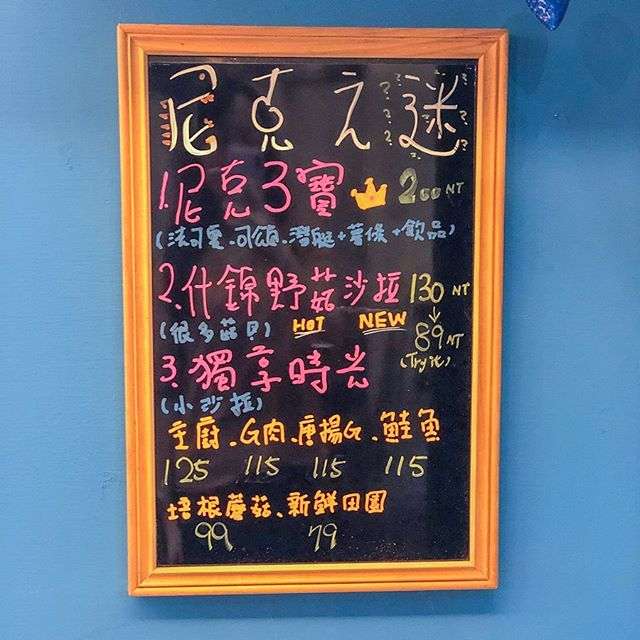 尼克之謎
1.尼克3寶 200 NT
(法可麗.可頌.潛艇+薯條+飲品)
2.什錦野菇沙拉 130 NT
(很多菇貝) HOT NEW 89 NT
(Try it)
3.獨享時光
(小沙拉)
主廚.G肉.唐揚G.鮭魚
125 115 115 115
培根蘑菇、新鮮田園
99 79